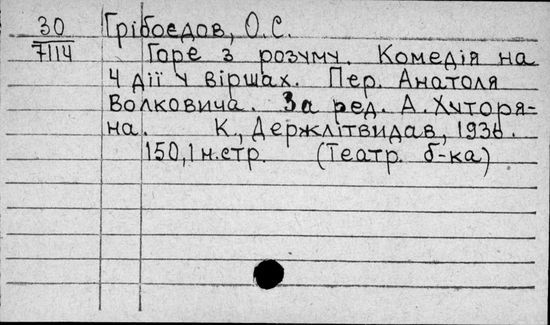 30
7114
Грібоєдов, О.С.
Горе з розуму. Комедія на
4 дії у віршах. Пер. Анатоля
Волковича. За ред. А. Хуторя=
на. К, Держлітвидав, 1936.
150,1 н.стр. (Театр. б-ка)